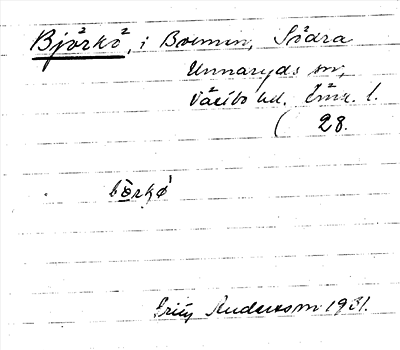 Björkö, i Bomen, Södra
Unnaryds sn,
Västbo hd. Jönk. l.
( 28.
börkö
Andersson 1931.